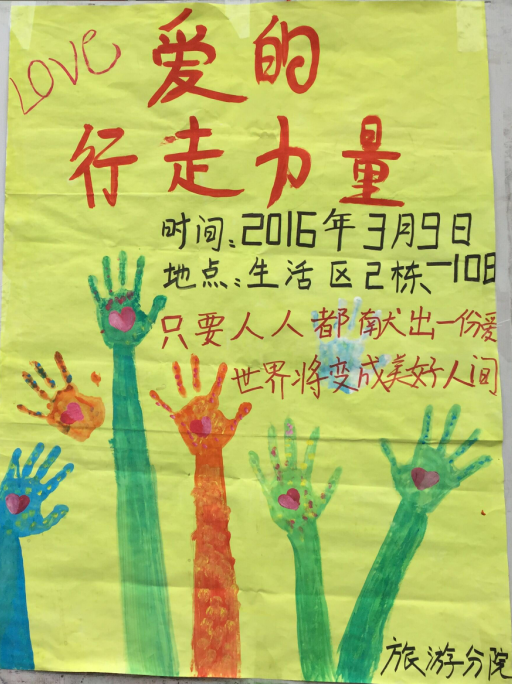 LOVE
爱的
行走力量
时间:2016年3月9日
地点:生活区2栋-108
只要人人都献出一份爱
世界将变成美好人间
旅游分院